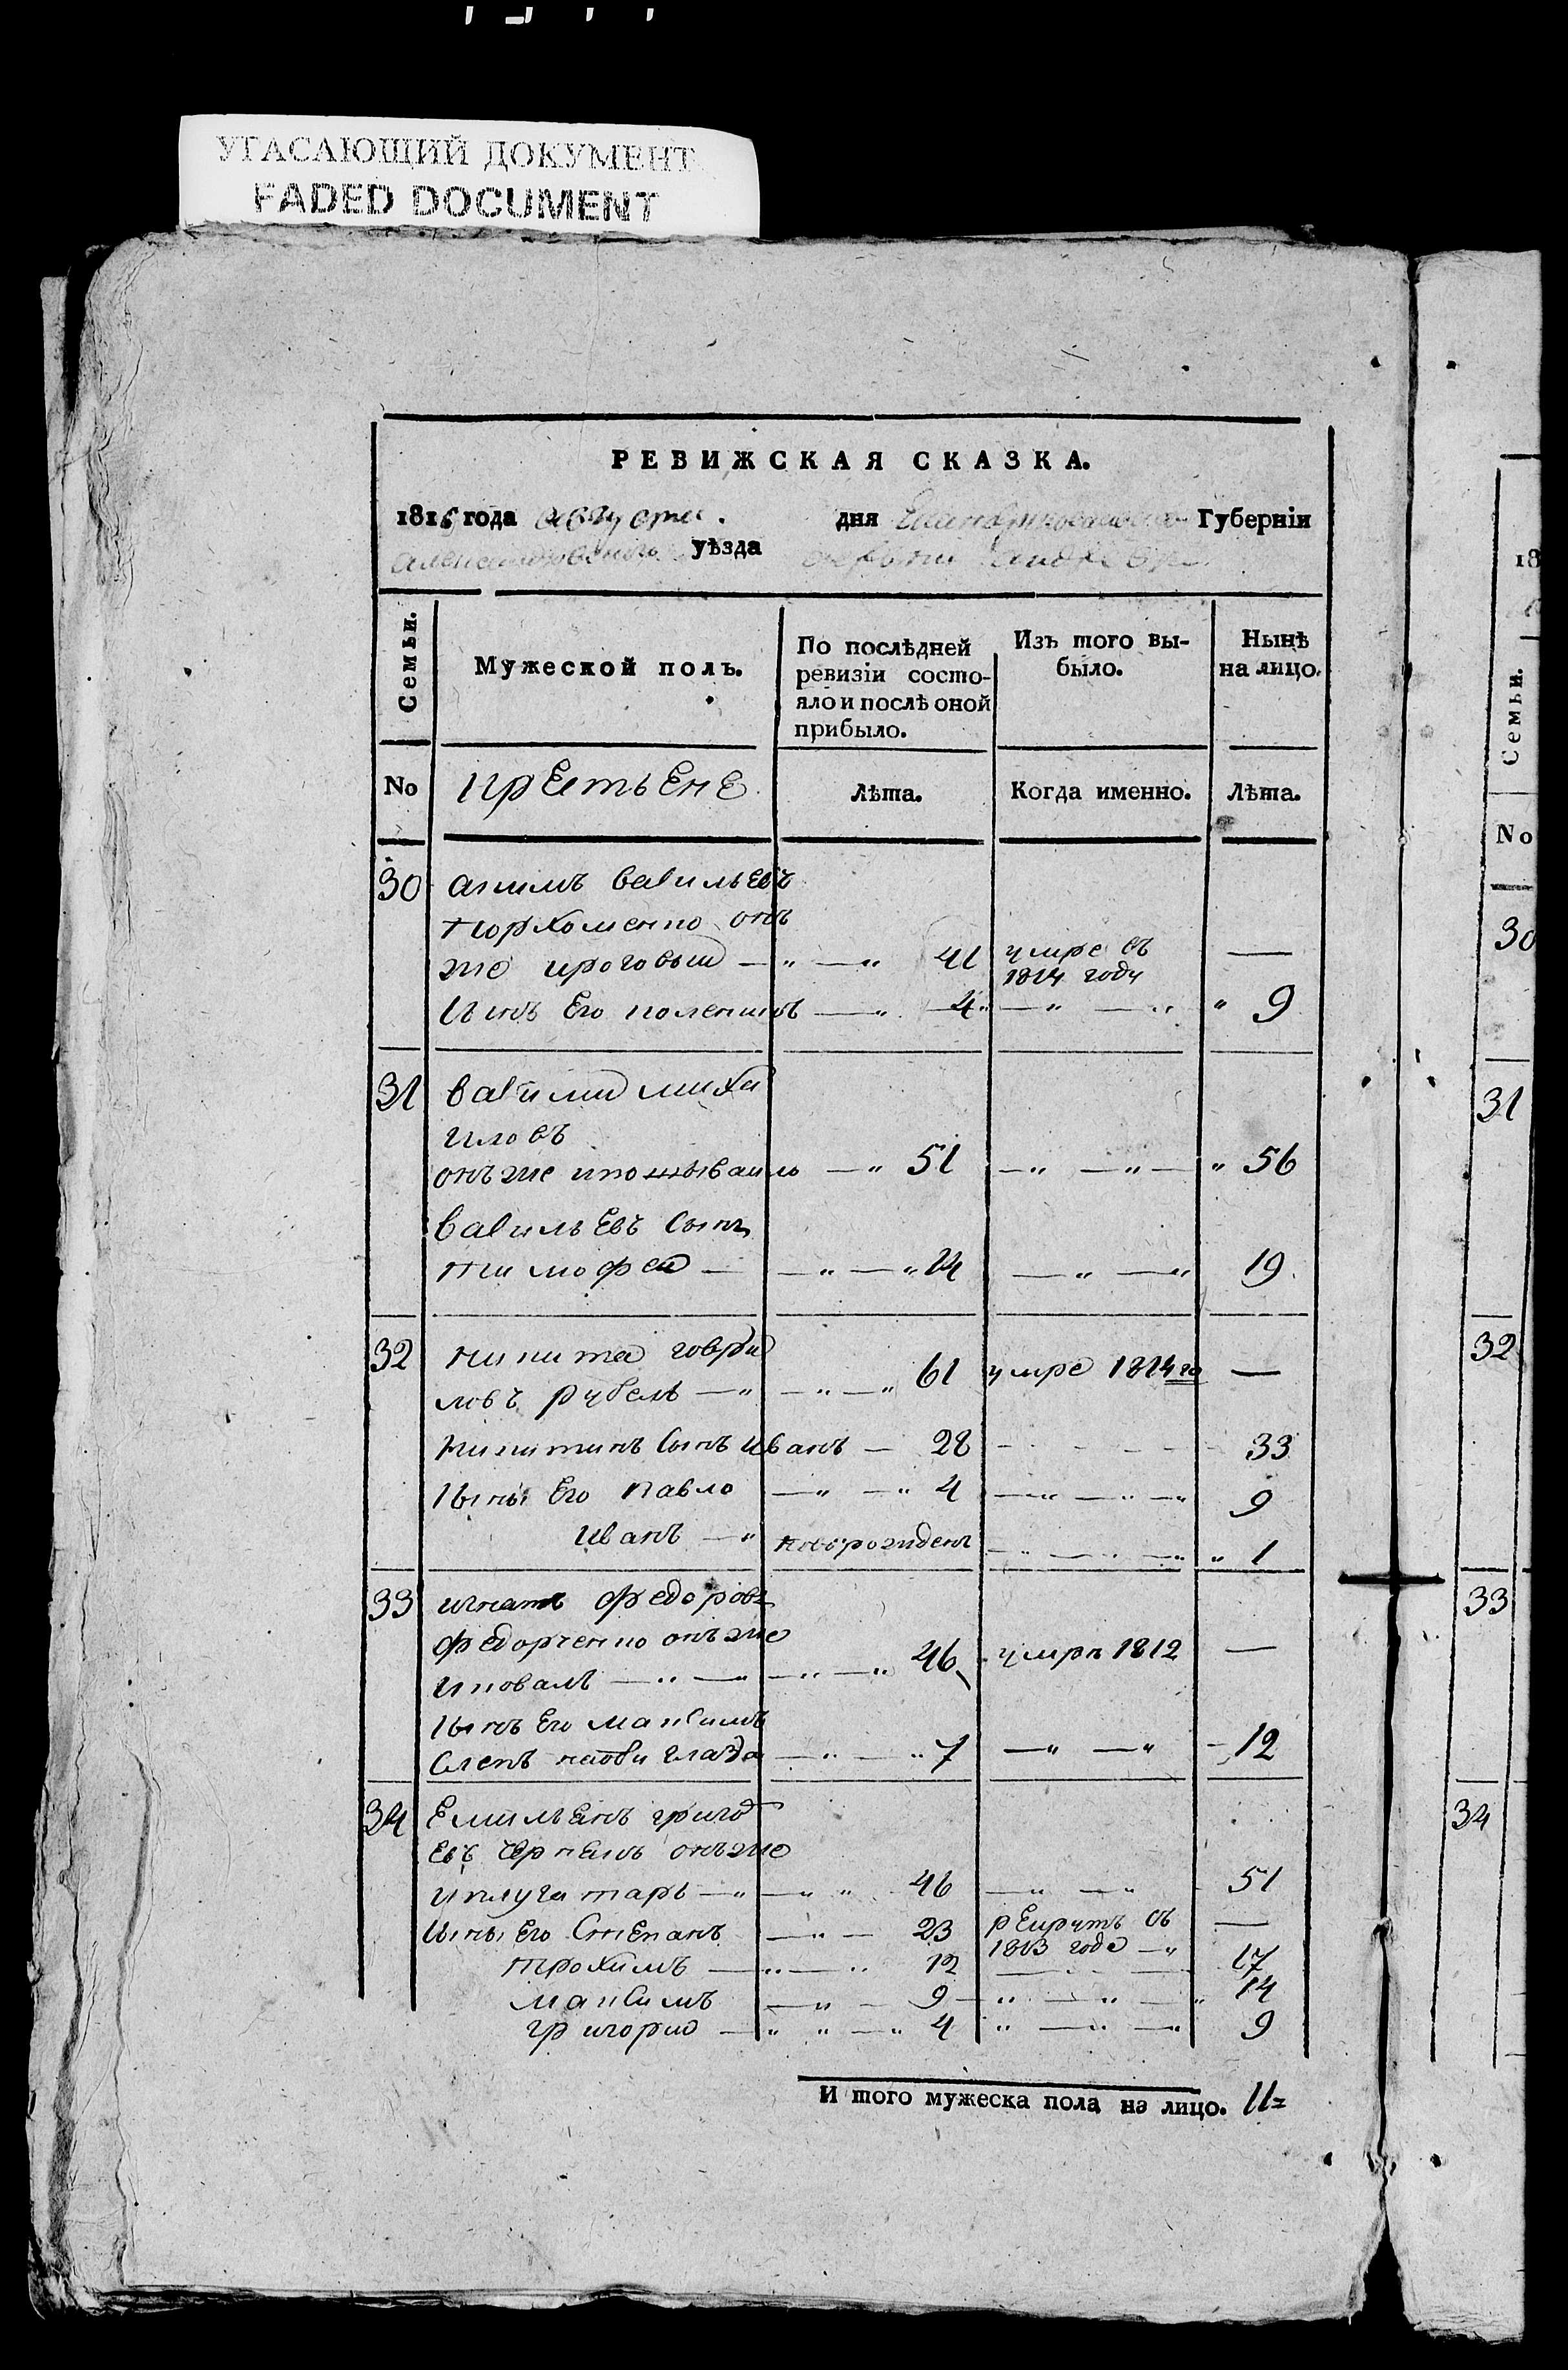 УГАСАЮЩИЙ ДОКУМЕНТ
FADED DOCUMENT
РЕВИЖСКАЯ СКАЗКА.
1816 года августа дня Губернiи
уѣзда
Семьи.
Мужеской полъ.
По послѣдней ревизiи состо-
яло и послѣ оной
прибыло.
Изъ того вы-
было.
Нынѣ
на лицо.
No крестьене Лѣта. Когда именно. Лѣта.
30 акимъ вавильевъ
пархоменко онъ
же 41 умре въ 1814 году —
сынъ Его 4 9
31 вавила миха
иловъ
онъ же 51 56
вавильевъ сынъ
тимофей — 14 19
32 никита гаври
ловъ рубель — 61 умре 1814го —
никитинъ сынъ иванъ — 28 33
сыны Его павло 4 9
иванъ — новорожденъ 1
33 игнатъ федоровъ
федорченко онъ же
46 умре 1812 —
сынъ Его максимъ
слепъ наоби глаза 7 12
34 Емильянъ григор
евъ онъ же
и плугатарь — 46 51
сыны Его Степанъ 23 рекрутъ въ 1813 годе —
трохимъ — 12 17
максимъ 9 14
григорий — 4 9
И того мужеска пола на лицо. 11=
18
Семьи.
No
30
31
32
33
34